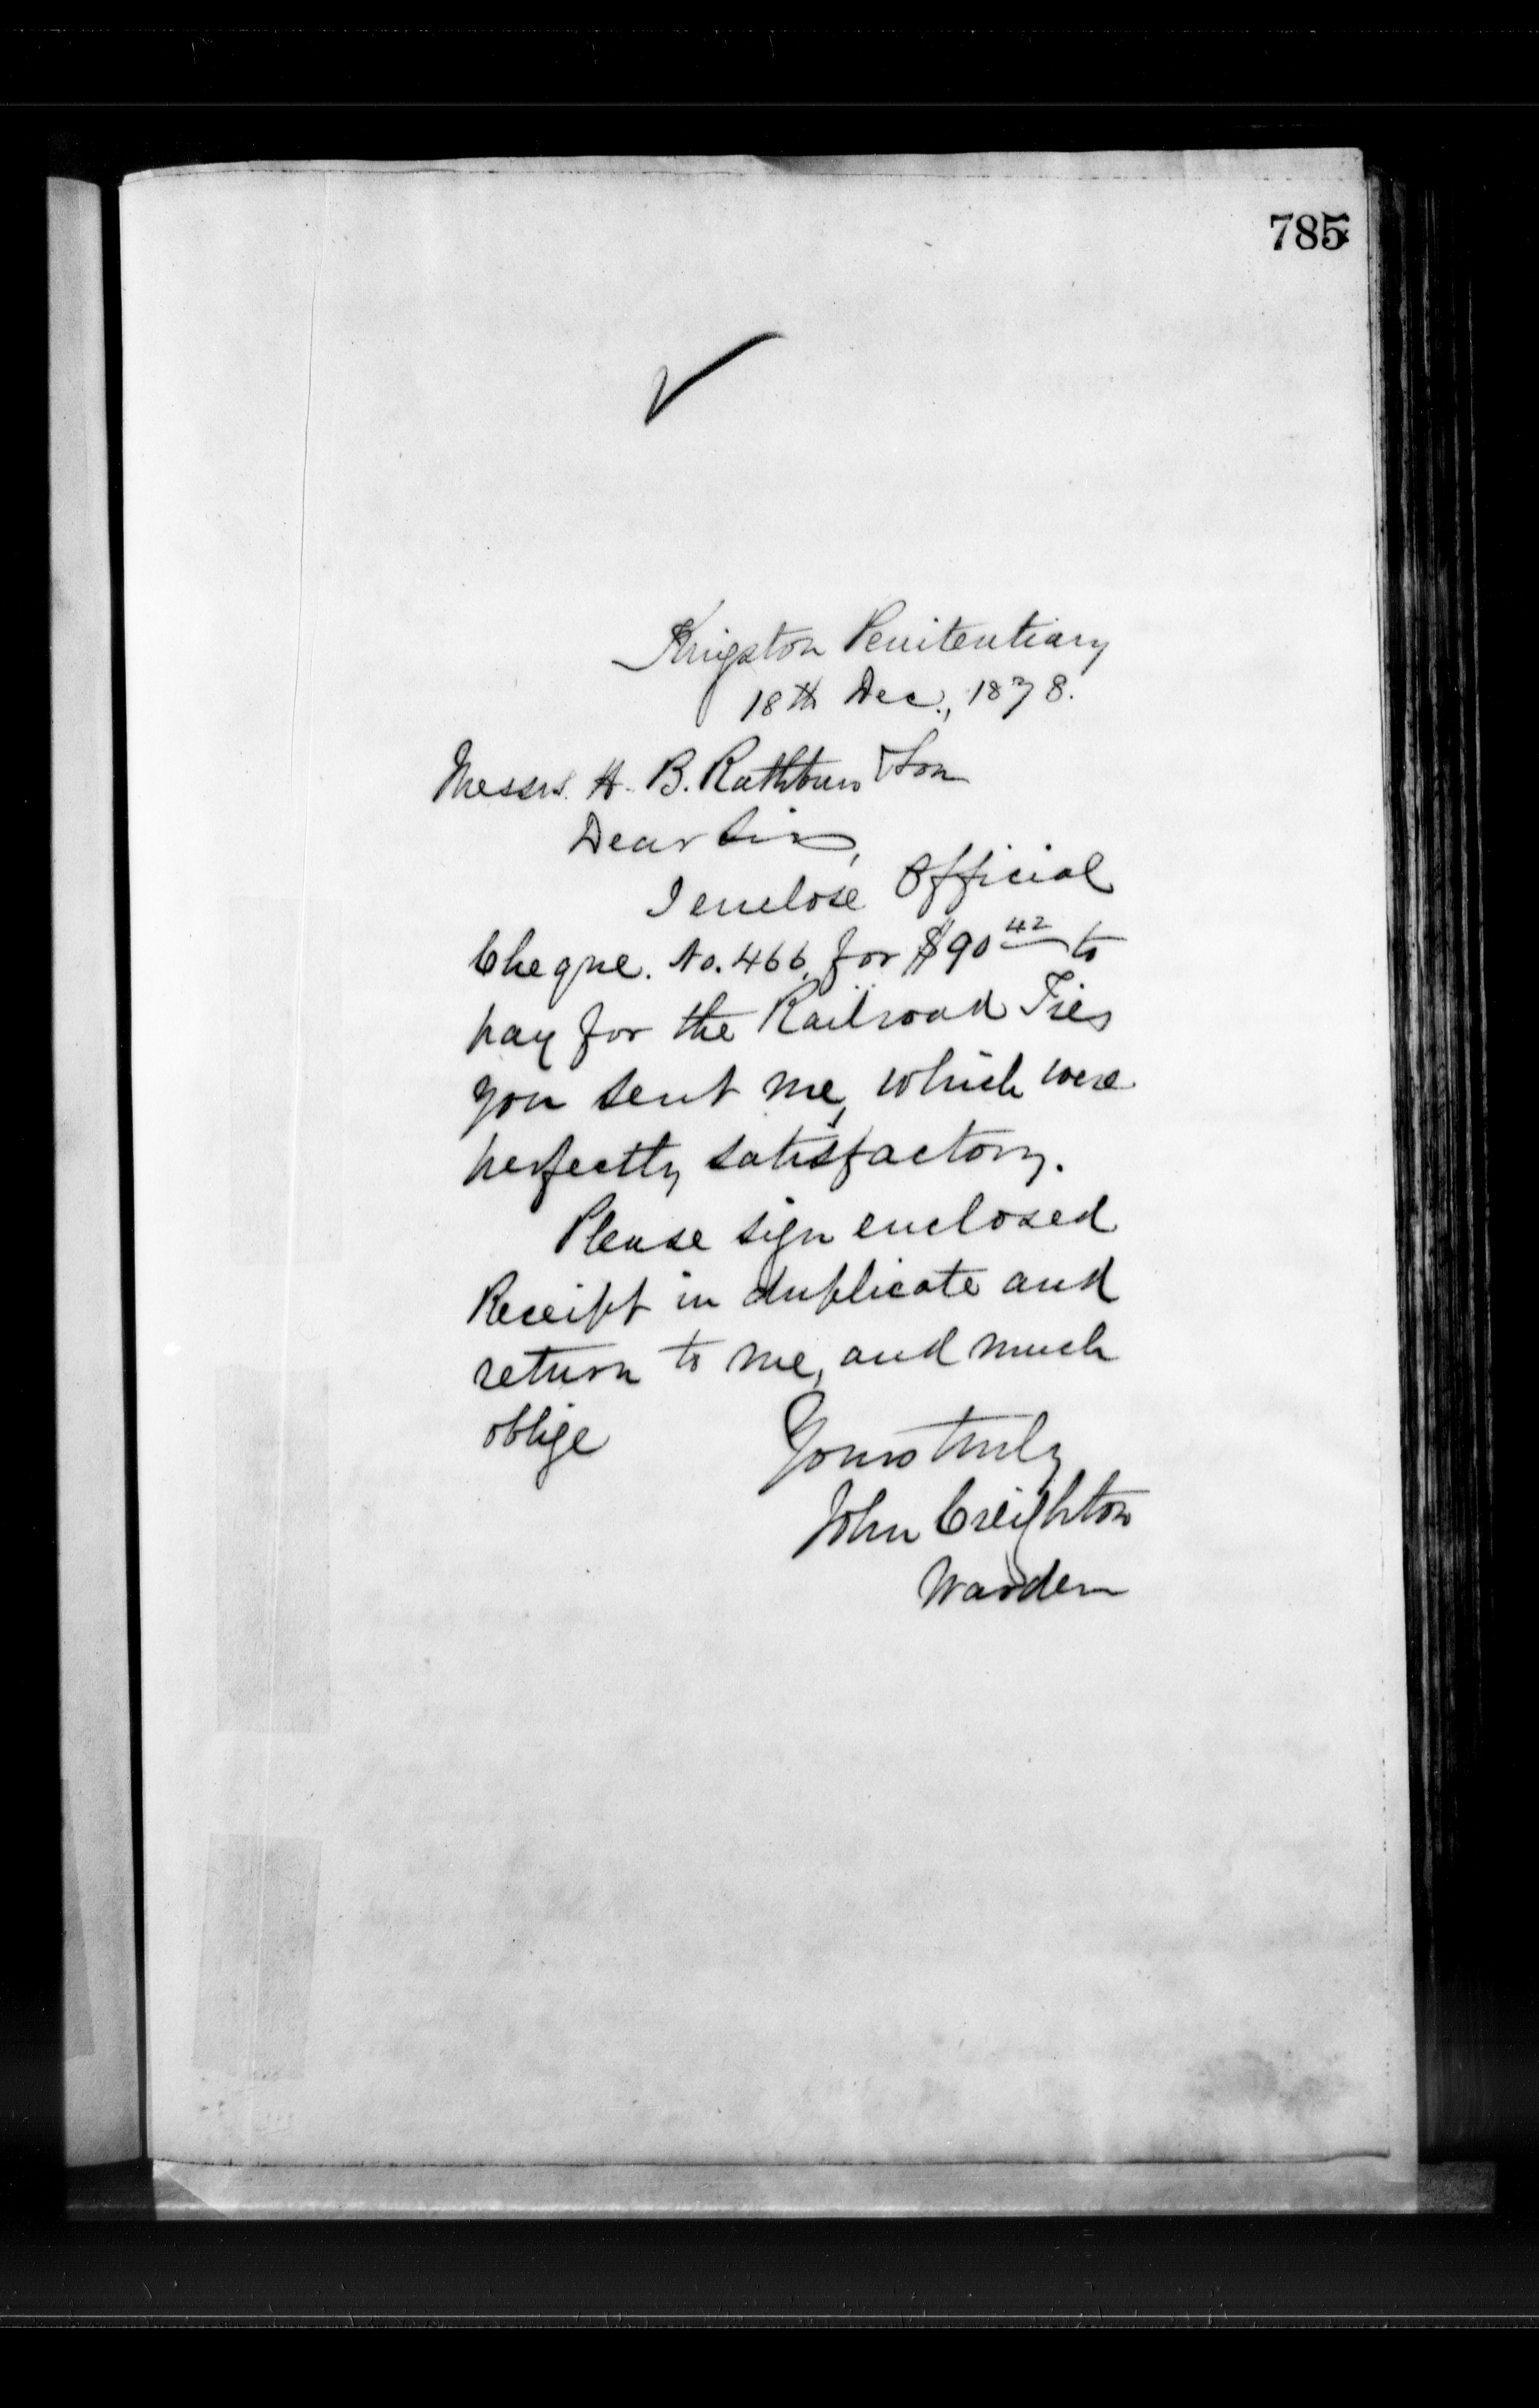 785
Kingston Penitentiary
18th Dec., 1878.
Messrs. H. B. Rathbun & Son
Dear Sirs,
I enclose Official
Cheque. No. 466, for $90 42 to
pay for the Railroad Ties
you sent me, which were
perfectly satisfactory.
Please sign enclosed
Receipt in duplicate and
return to me, and much
oblige
Yours truly
John Creighton
Warden